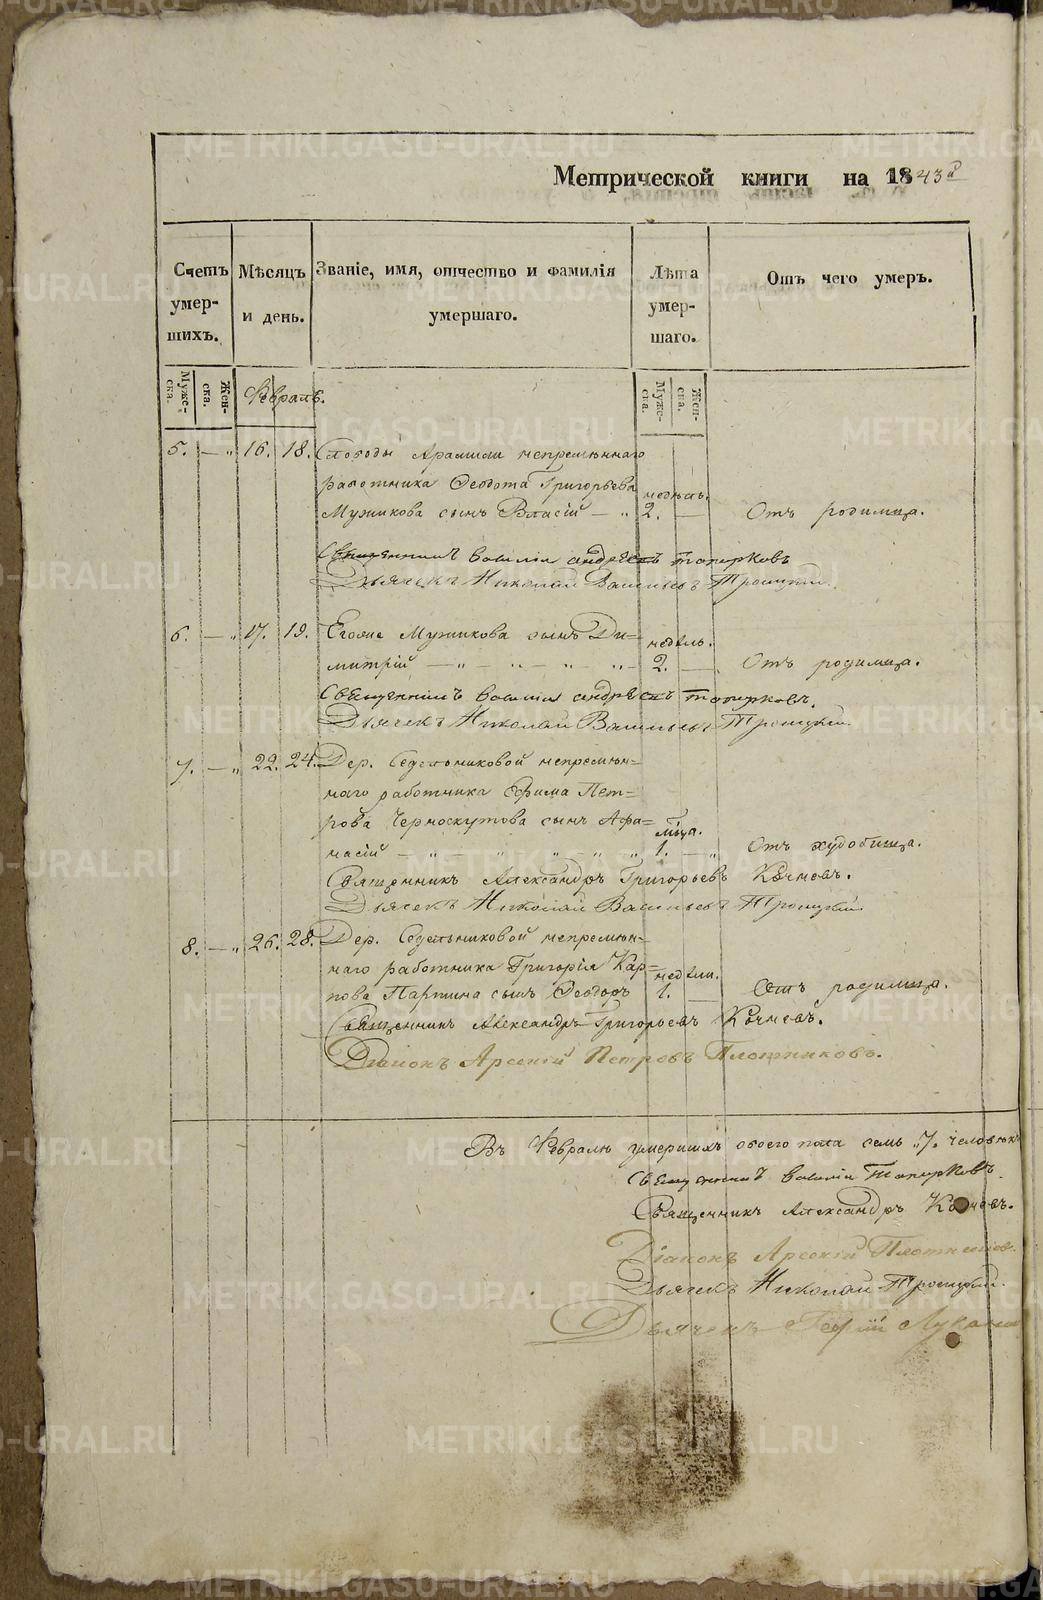 Метрической книги на 1843й
Счетъ умер-шихъ.
Мѣсяцъ и день.
Званіе, имя, отчество и фамилія умершаго.
Лѣта умер-шаго.
Отъ чего умеръ.
Муже-ска.
Жен-ска.
Февраль.
Муже-ска.
Жен-ска.
5. — „ 16. 18. Слободы Арамили непремѣннаго
работника Ѳеодота Григорьева недѣль.
Мужикова сынъ Власій — „ 2. — Отъ родимца.
Священникъ Василій Андреевъ Топорковъ
Дьячекъ Николай Васильевъ Троицкій.
6. — „ 17. 19. Егоже Мужикова сынъ Ди= недѣль.
митрій — „ — „ — „ — „ — 2. — Отъ родимца.
Священникъ Василій Андреевъ Топорковъ.
Дьячекъ Николай Васильевъ Троицкій.
7. — „ 22. 24. Дер. Седельниковой непремѣн=
наго работника Ефима Пет=
рова Черноскутова сынъ Афа= мѣца.
насій — „ — „ — „ — „ — „ 1. — „ Отъ худобища.
Священникъ Александръ Григорьевъ Кочневъ.
Дьячекъ Николай Васильевъ Троицкій.
8. — „ 26. 28. Дер. Седельниковой непремѣн=
наго работника Григорія Кар= недѣли.
пова Паршина сынъ Ѳеодоръ 1. — Отъ родимца.
Священникъ Александръ Григорьевъ Кочневъ.
Діаконъ Арсеній Петровъ Плотниковъ.
Въ Февралѣ умершихъ обоего пола семь „7„ человѣкъ
Священникъ Василій Топорковъ.
Священникъ Александръ Кочневъ.
Діаконъ Арсеній Плотниковъ.
Дьячекъ Николай Троицкій.
Дьячекъ Георгій
METRIKI.GASO-URAL.RU